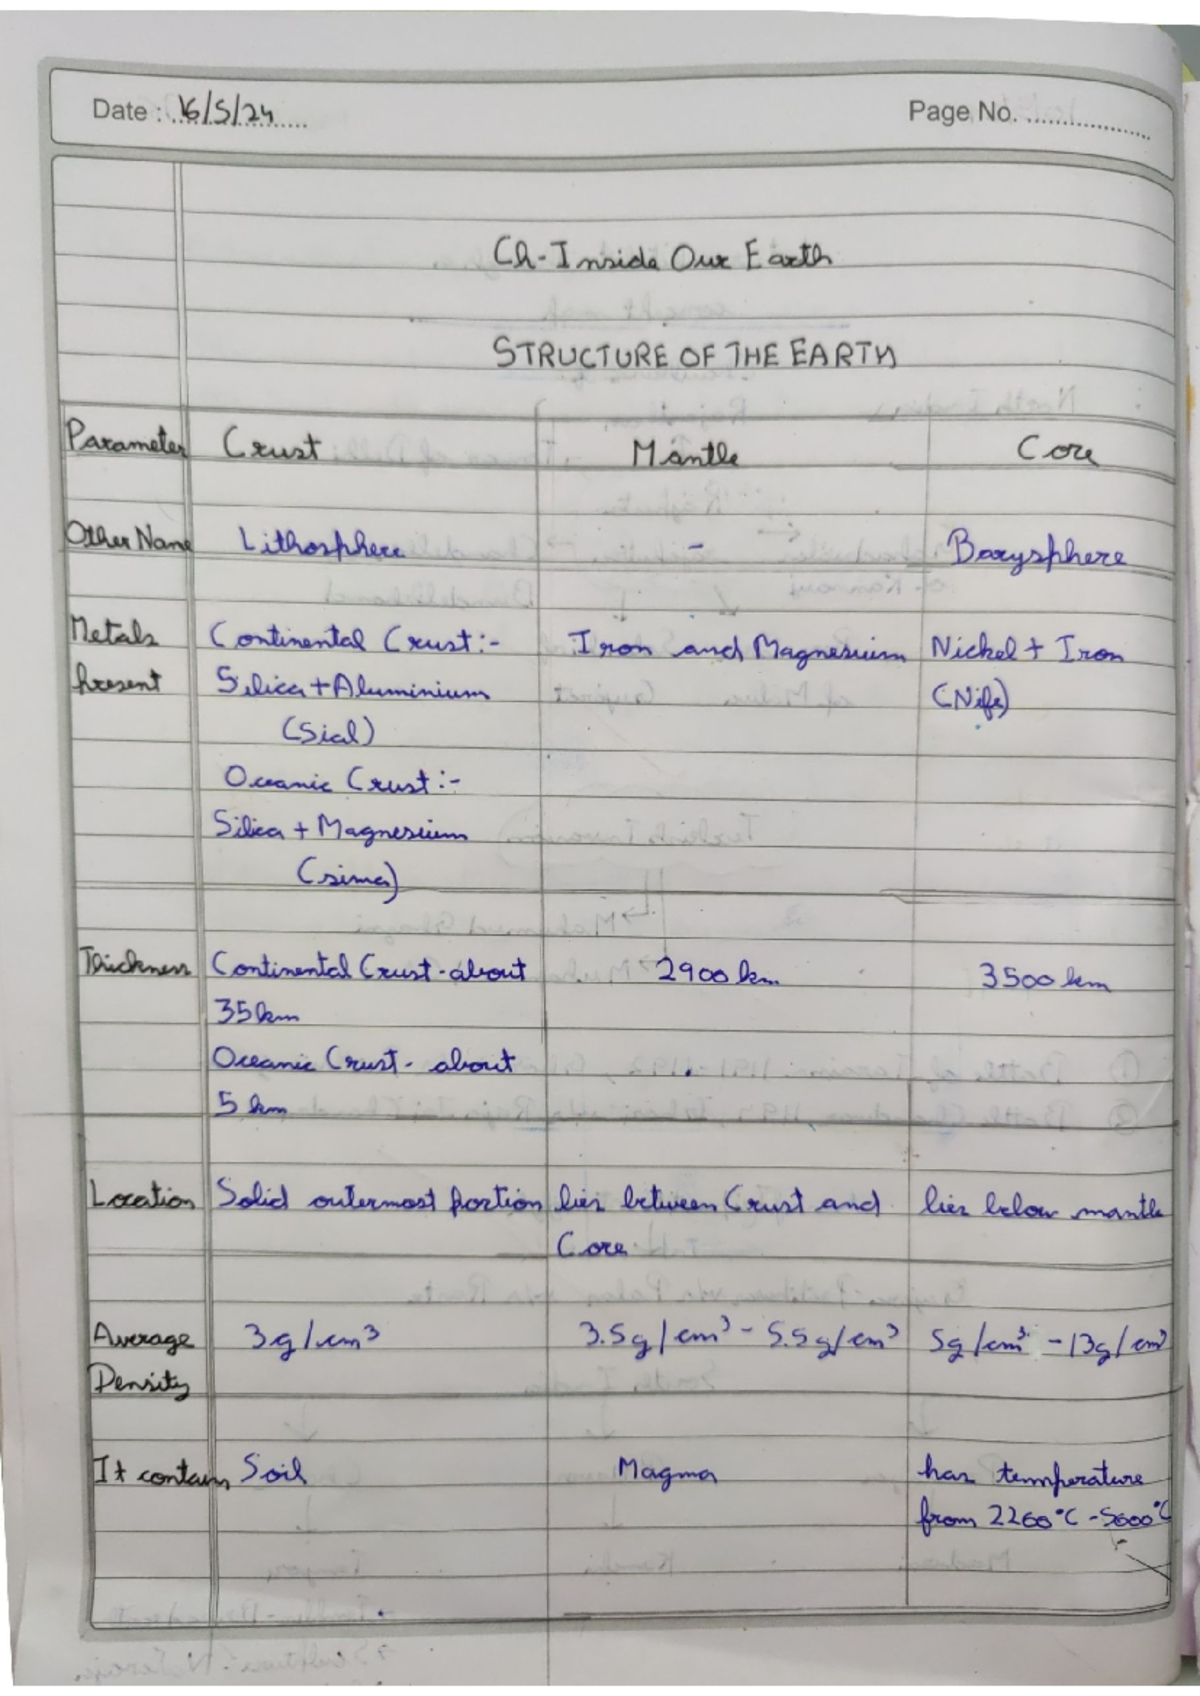 Date : 16/5/24 Page No.
Ch-Inside Our Earth
STRUCTURE OF THE EARTH
Parameter Crust Mantle Core
Other Name Lithosphere - Barysphere
Metals Continental Crust:- Iron and Magnesium Nickel + Iron
present Silica + Aluminium (Nife)
(Sial)
Oceanic Crust:-
Silica + Magnesium
(sima)
Thickness Continental Crust - about 2900 km 3500 km
35km
Oceanic Crust - about
5 km
Location Solid outermost portion lies between Crust and lies below mantle
Core.
Average 3g/cm³ 3.5g/cm³ - 5.5g/cm³ 5g/cm³ - 13g/cm³
Density
It contains Soil Magma has temperature
from 2260°C - 5000°C